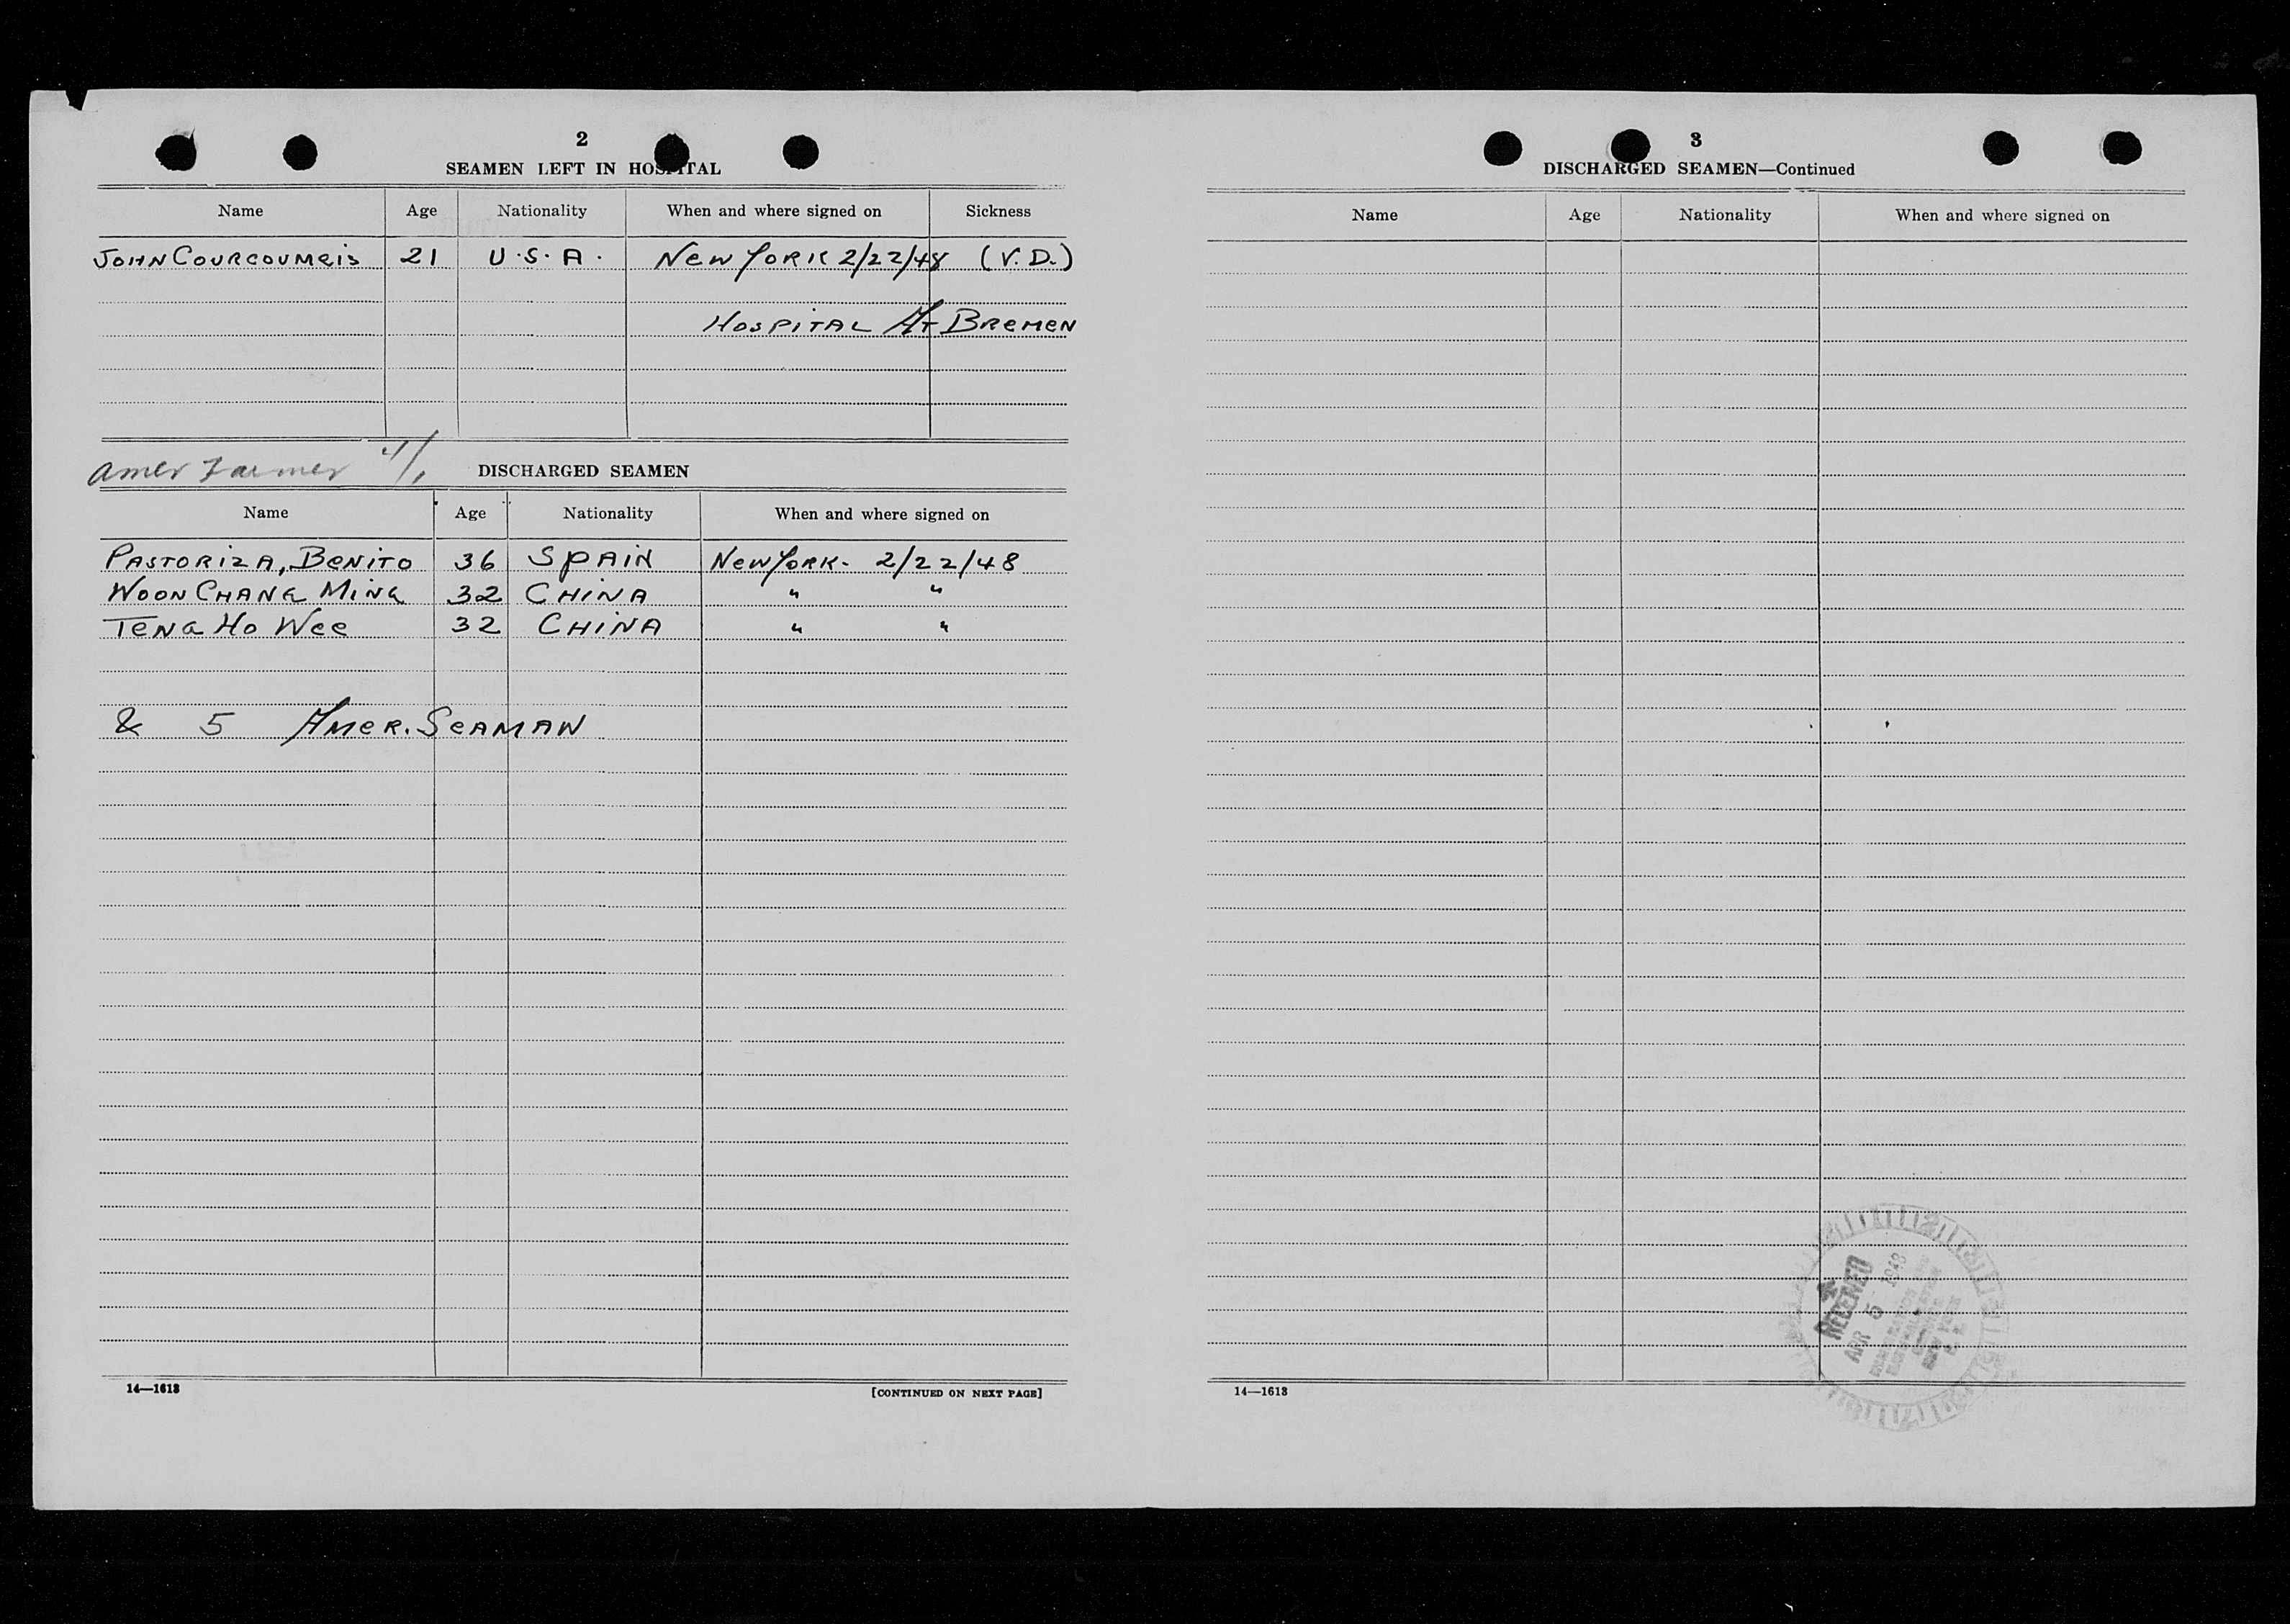 2
SEAMEN LEFT IN HOSPITAL
Name Age Nationality When and where signed on Sickness
JOHN COURCOUMEIS 21 U.S.A. NEW YORK 2/22/48 (V.D.)
HOSPITAL AT BREMEN
Amer Farmer 4/1
DISCHARGED SEAMEN
Name Age Nationality When and where signed on
PASTORIZA, BENITO 36 SPAIN NEW YORK - 2/22/48
WOON CHANG MING 32 CHINA " "
TENG HO WEE 32 CHINA " "
& 5 AMER. SEAMAN
14—1613
[CONTINUED ON NEXT PAGE]
3
DISCHARGED SEAMEN—Continued
Name Age Nationality When and where signed on
RECEIVED
APR 5 1948
14—1613